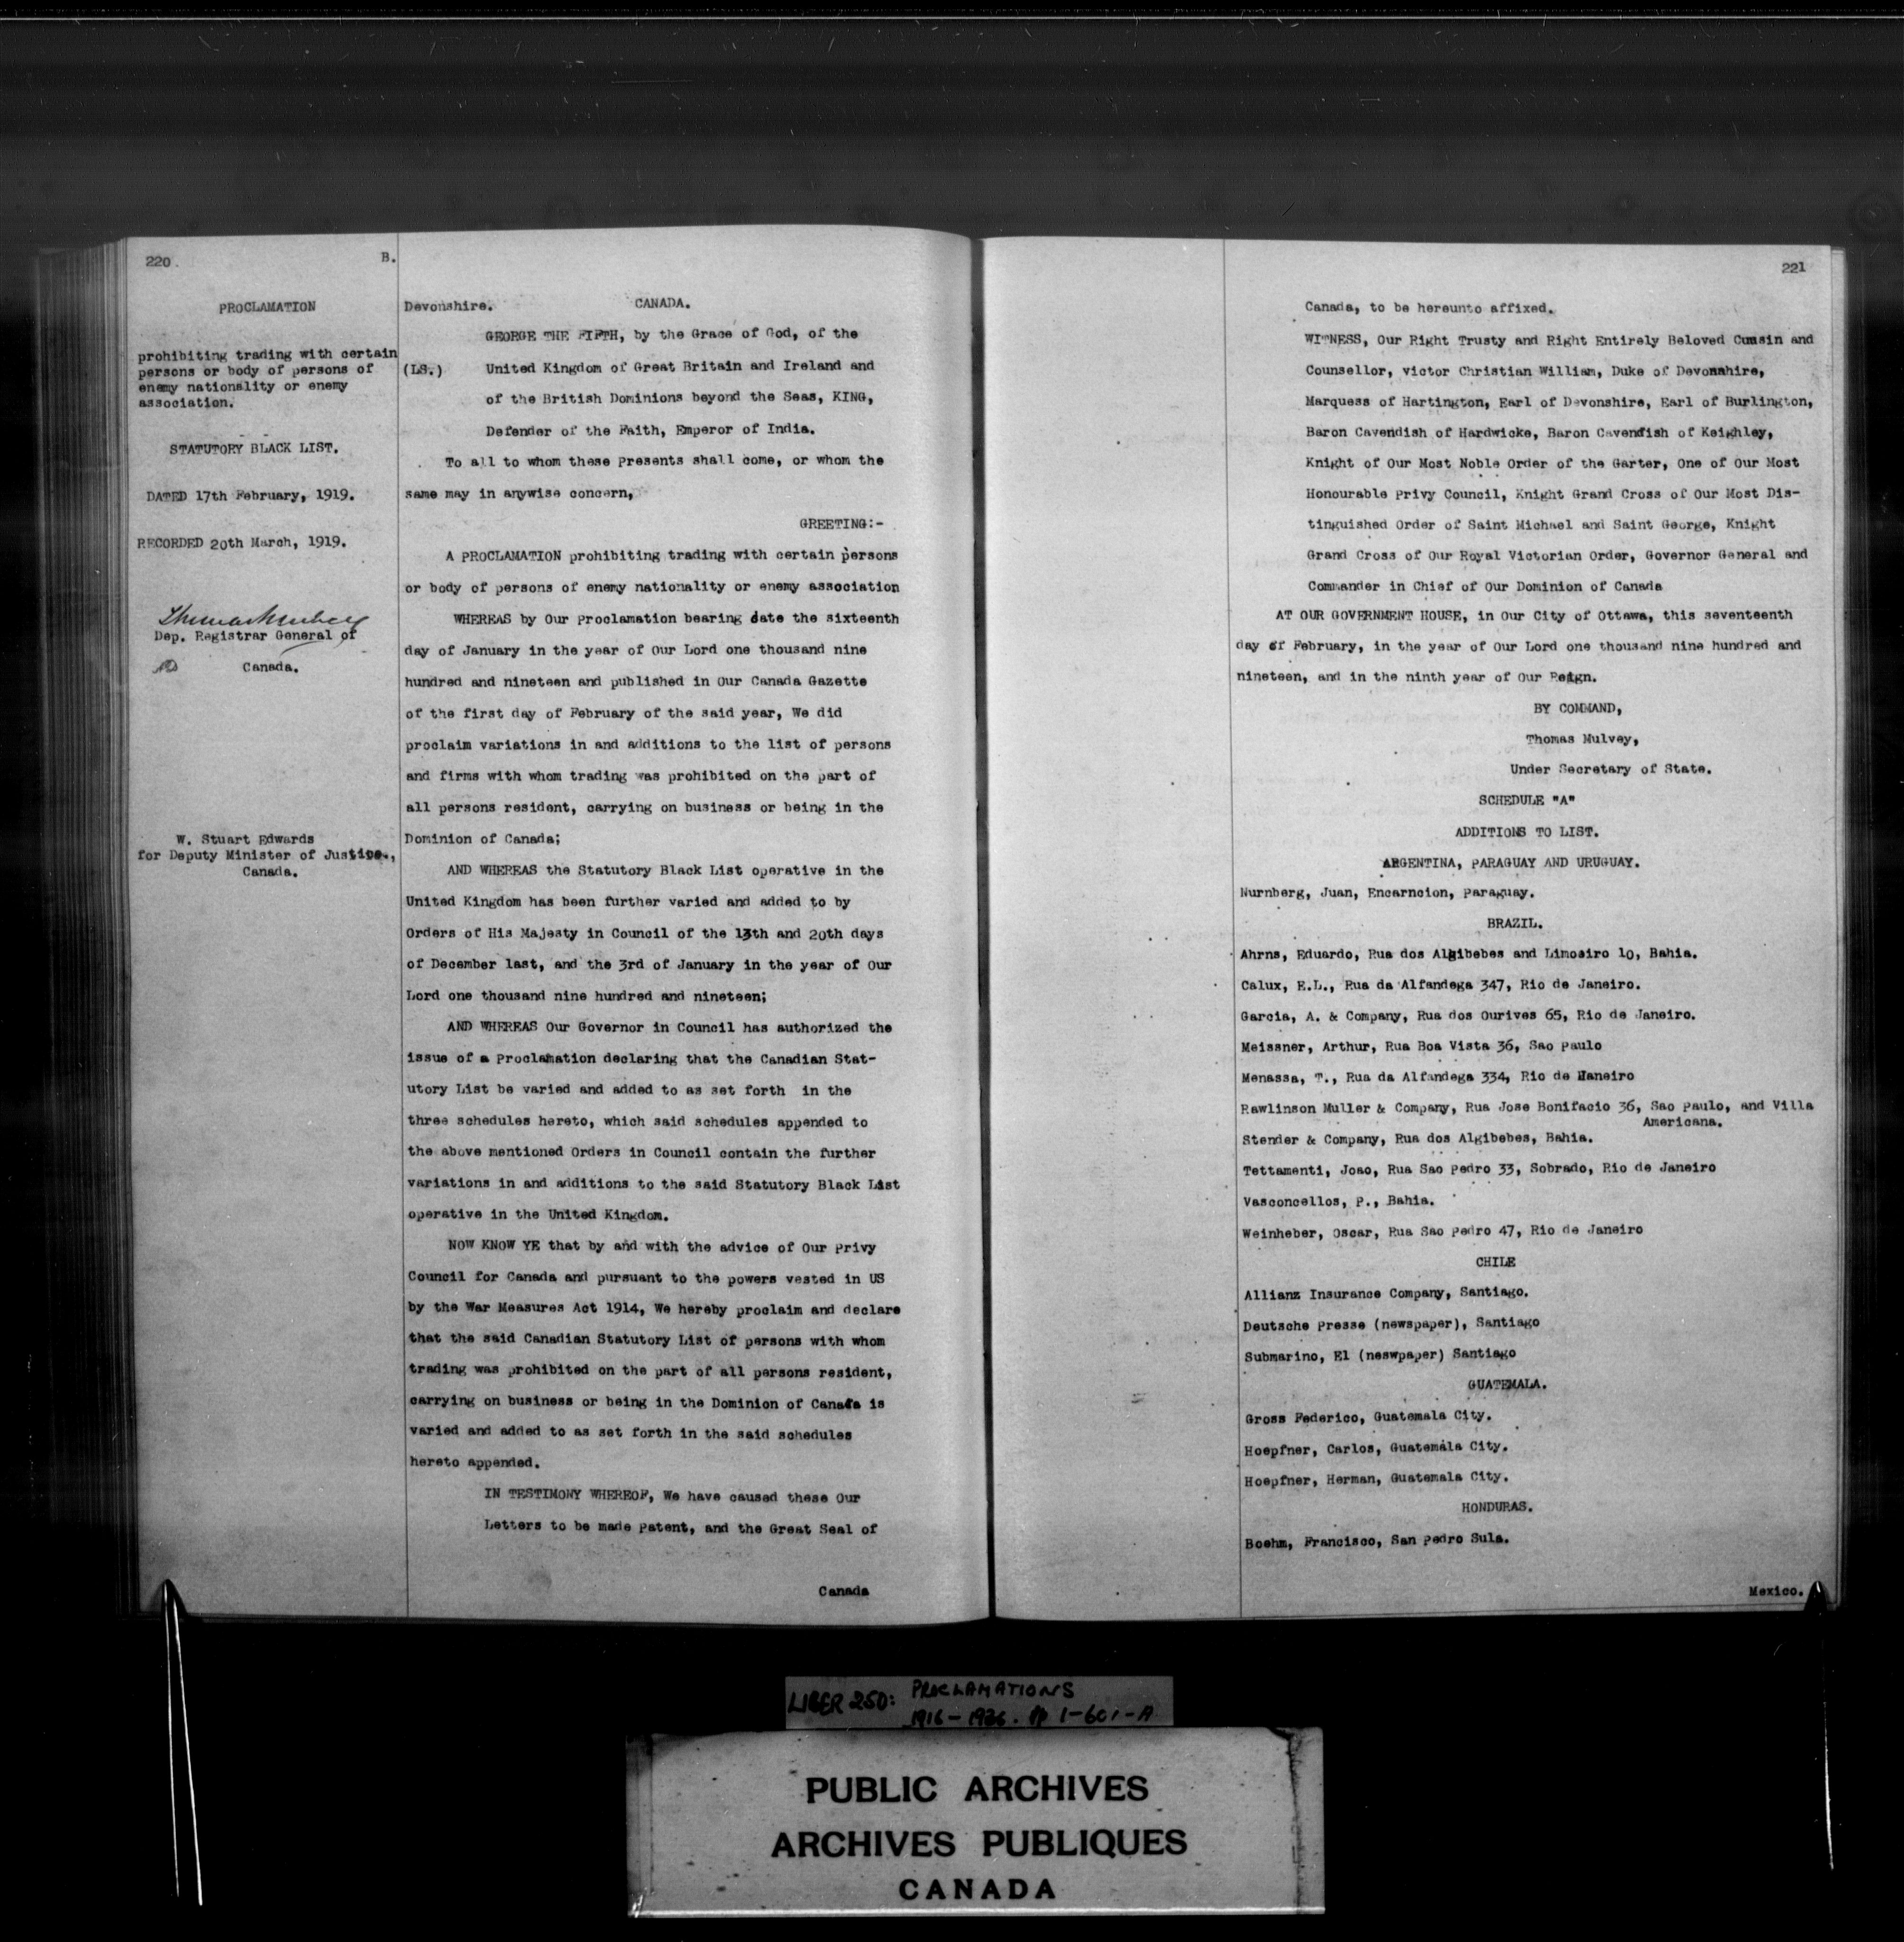 220.
B.
PROCLAMATION
prohibiting trading with certain
persons or body of persons of
enemy nationality or enemy
association.
STATUTORY BLACK LIST.
DATED 17th February, 1919.
RECORDED 20th March, 1919.
Thomas Mulvey
Dep. Registrar General of
Canada.
W. Stuart Edwards
for Deputy Minister of Justice.,
Canada.
Devonshire. CANADA.
GEORGE THE FIFTH, by the Grace of God, of the
(LS.) United Kingdom of Great Britain and Ireland and
of the British Dominions beyond the Seas, KING,
Defender of the Faith, Emperor of India.
To all to whom these Presents shall come, or whom the
same may in anywise concern,
GREETING:-
A PROCLAMATION prohibiting trading with certain persons
or body of persons of enemy nationality or enemy association
WHEREAS by Our Proclamation bearing date the sixteenth
day of January in the year of Our Lord one thousand nine
hundred and nineteen and published in Our Canada Gazette
of the first day of February of the said year, We did
proclaim variations in and additions to the list of persons
and firms with whom trading was prohibited on the part of
all persons resident, carrying on business or being in the
Dominion of Canada;
AND WHEREAS the Statutory Black List operative in the
United Kingdom has been further varied and added to by
Orders of His Majesty in Council of the 13th and 20th days
of December last, and the 3rd of January in the year of Our
Lord one thousand nine hundred and nineteen;
AND WHEREAS Our Governor in Council has authorized the
issue of a Proclamation declaring that the Canadian Stat-
utory List be varied and added to as set forth in the
three schedules hereto, which said schedules appended to
the above mentioned Orders in Council contain the further
variations in and additions to the said Statutory Black List
operative in the United Kingdom.
NOW KNOW YE that by and with the advice of Our Privy
Council for Canada and pursuant to the powers vested in US
by the War Measures Act 1914, We hereby proclaim and declare
that the said Canadian Statutory List of persons with whom
trading was prohibited on the part of all persons resident,
carrying on business or being in the Dominion of Canada is
varied and added to as set forth in the said schedules
hereto appended.
IN TESTIMONY WHEREOF, We have caused these Our
Letters to be made Patent, and the Great Seal of
Canada
221
Canada, to be hereunto affixed.
WITNESS, Our Right Trusty and Right Entirely Beloved Cousin and
Counsellor, Victor Christian William, Duke of Devonshire,
Marquess of Hartington, Earl of Devonshire, Earl of Burlington,
Baron Cavendish of Hardwicke, Baron Cavendish of Keighley,
Knight of Our Most Noble Order of the Garter, One of Our Most
Honourable Privy Council, Knight Grand Cross of Our Most Dis-
tinguished Order of Saint Michael and Saint George, Knight
Grand Cross of Our Royal Victorian Order, Governor General and
Commander in Chief of Our Dominion of Canada
AT OUR GOVERNMENT HOUSE, in Our City of Ottawa, this seventeenth
day of February, in the year of Our Lord one thousand nine hundred and
nineteen, and in the ninth year of Our Reign.
BY COMMAND,
Thomas Mulvey,
Under Secretary of State.
SCHEDULE "A"
ADDITIONS TO LIST.
ARGENTINA, PARAGUAY AND URUGUAY.
Nurnberg, Juan, Encarncion, Paraguay.
BRAZIL.
Ahrns, Eduardo, Rua dos Algibebes and Limoeiro 10, Bahia.
Calux, E.L., Rua da Alfandega 347, Rio de Janeiro.
Garcia, A. & Company, Rua dos Ourives 65, Rio de Janeiro.
Meissner, Arthur, Rua Boa Vista 36, Sao Paulo
Menassa, T., Rua da Alfandega 334, Rio de Haneiro
Rawlinson Muller & Company, Rua Jose Bonifacio 36, Sao Paulo, and Villa
Americana.
Stender & Company, Rua dos Algibebes, Bahia.
Tettamenti, Joao, Rua Sao Pedro 33, Sobrado, Rio de Janeiro
Vasconcellos, P., Bahia.
Weinheber, Oscar, Rua Sao Pedro 47, Rio de Janeiro
CHILE
Allianz Insurance Company, Santiago.
Deutsche Presse (newspaper), Santiago
Submarino, El (neswpaper) Santiago
GUATEMALA.
Gross Federico, Guatemala City.
Hoepfner, Carlos, Guatemala City.
Hoepfner, Herman, Guatemala City.
HONDURAS.
Boehm, Francisco, San Pedro Sula.
Mexico.
LIBER 250: PROCLAMATIONS
1916-1926. pp 1-601-A
PUBLIC ARCHIVES
ARCHIVES PUBLIQUES
CANADA